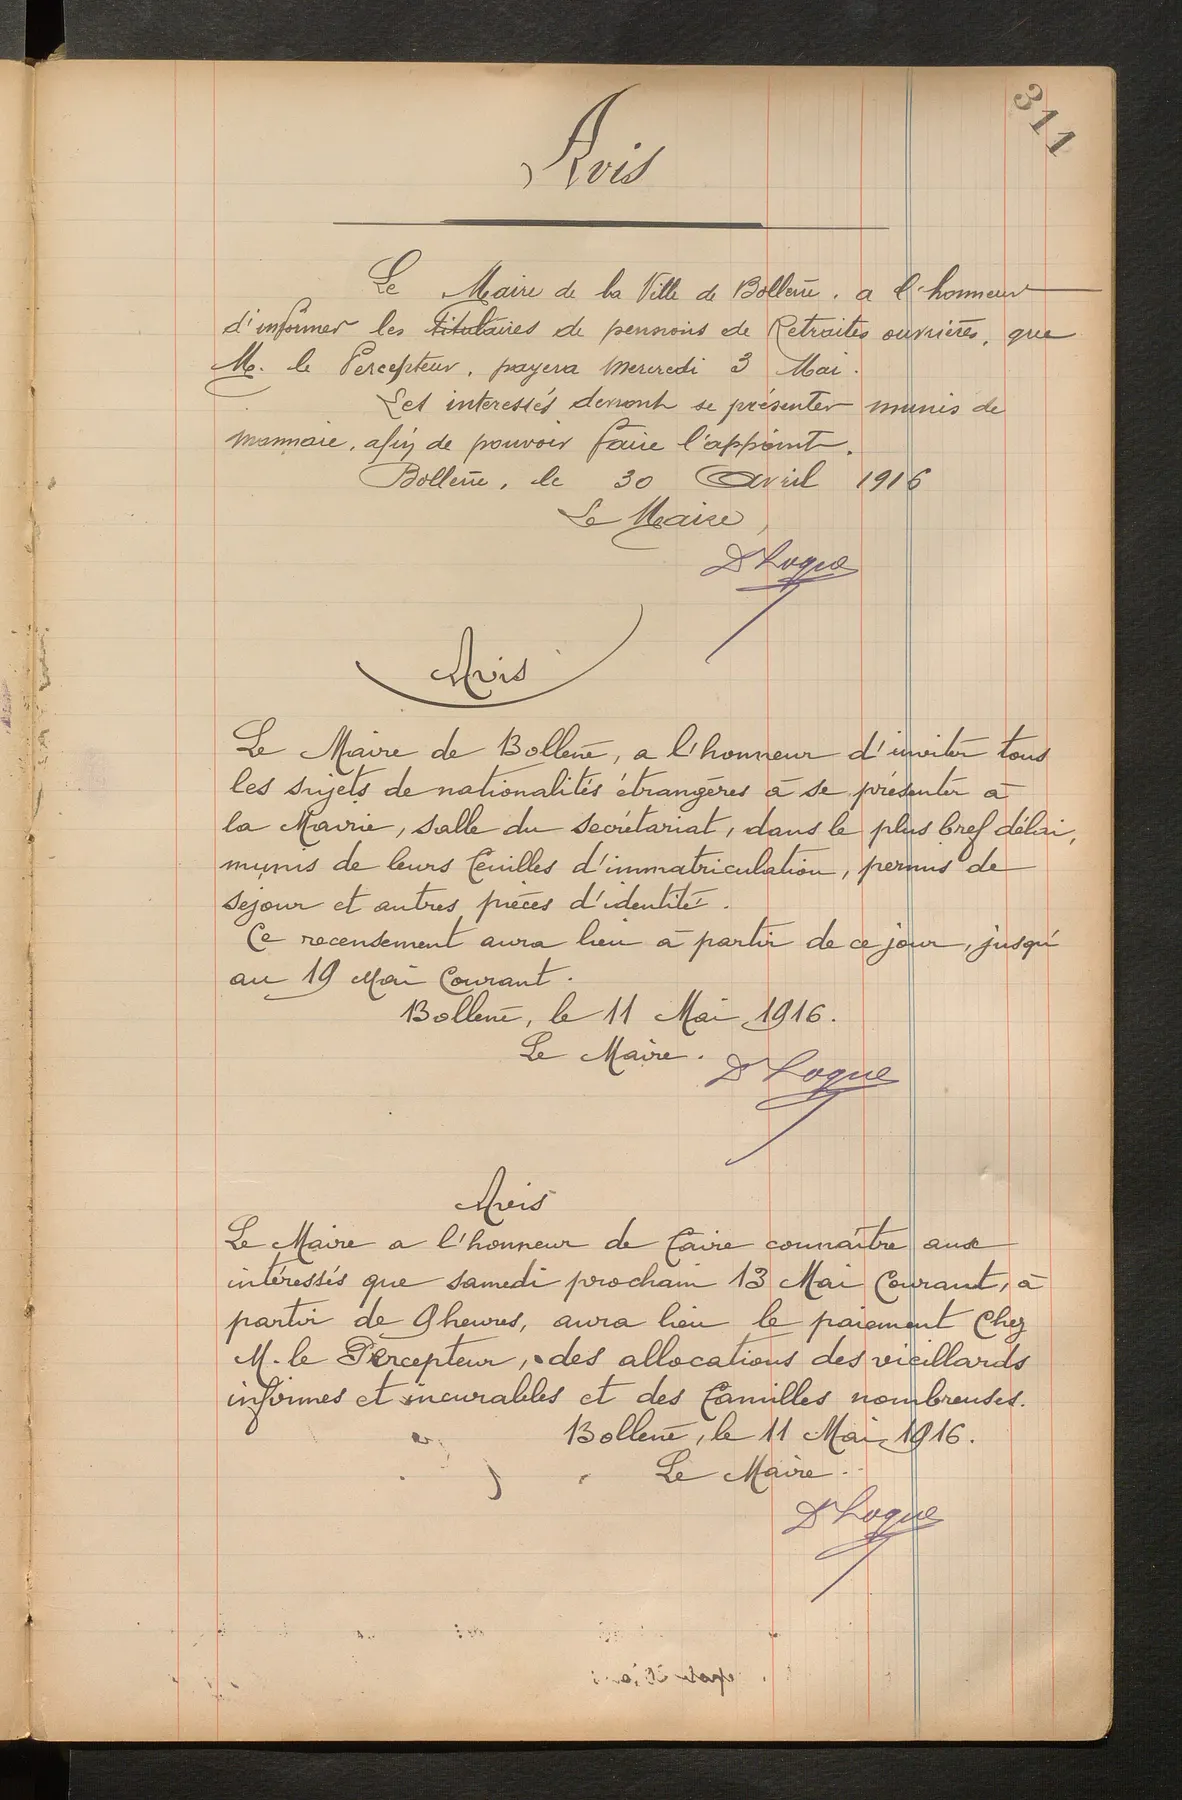 311
Avis
Le Maire de la Ville de Bollène, a l'honneur
d'informer les titulaires de pensions de Retraites ouvrières, que
M. le Percepteur, payera Mercredi 3 Mai.
Les interessés devront se présenter munis de
monnaie, afin de pouvoir faire l'appoint.
Bollène, le 30 Avril 1916
Le Maire,
Dr Loque
Avis
Le Maire de Bollène, a l'honneur d'inviter tous
les sujets de nationalités étrangères à se présenter à
la Mairie, salle du secrétariat, dans le plus bref délai,
munis de leurs feuilles d'immatriculation, permis de
sejour et autres pièces d'identité.
Ce recensement aura lieu à partir de ce jour, jusqu'
au 19 Mai Courant.
Bollène, le 11 Mai 1916.
Le Maire.
Dr Loque
Avis
Le Maire a l'honneur de faire connaître aux
intéressés que samedi prochain 13 Mai Courant, à
partir de 9 heures, aura lieu le paiement chez
M. le Percepteur, des allocations des vieillards
infirmes et incurables et des familles nombreuses.
Bollène, le 11 Mai 1916.
Le Maire.
Dr Loque